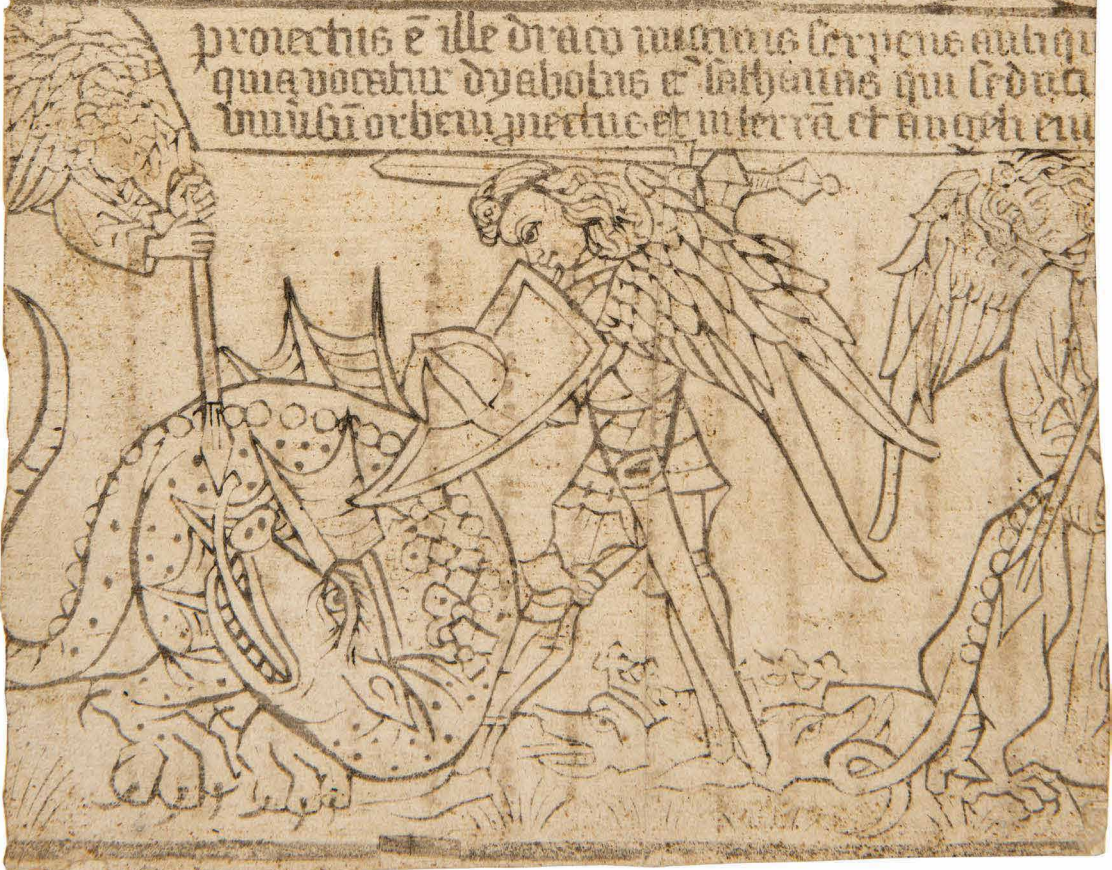 proiectus ē ille draco magnus serpens antiqu
quia vocatur dyabolus et sathanas qui seduci
vniūsū orbem piectus et in terrā et angeli eiu